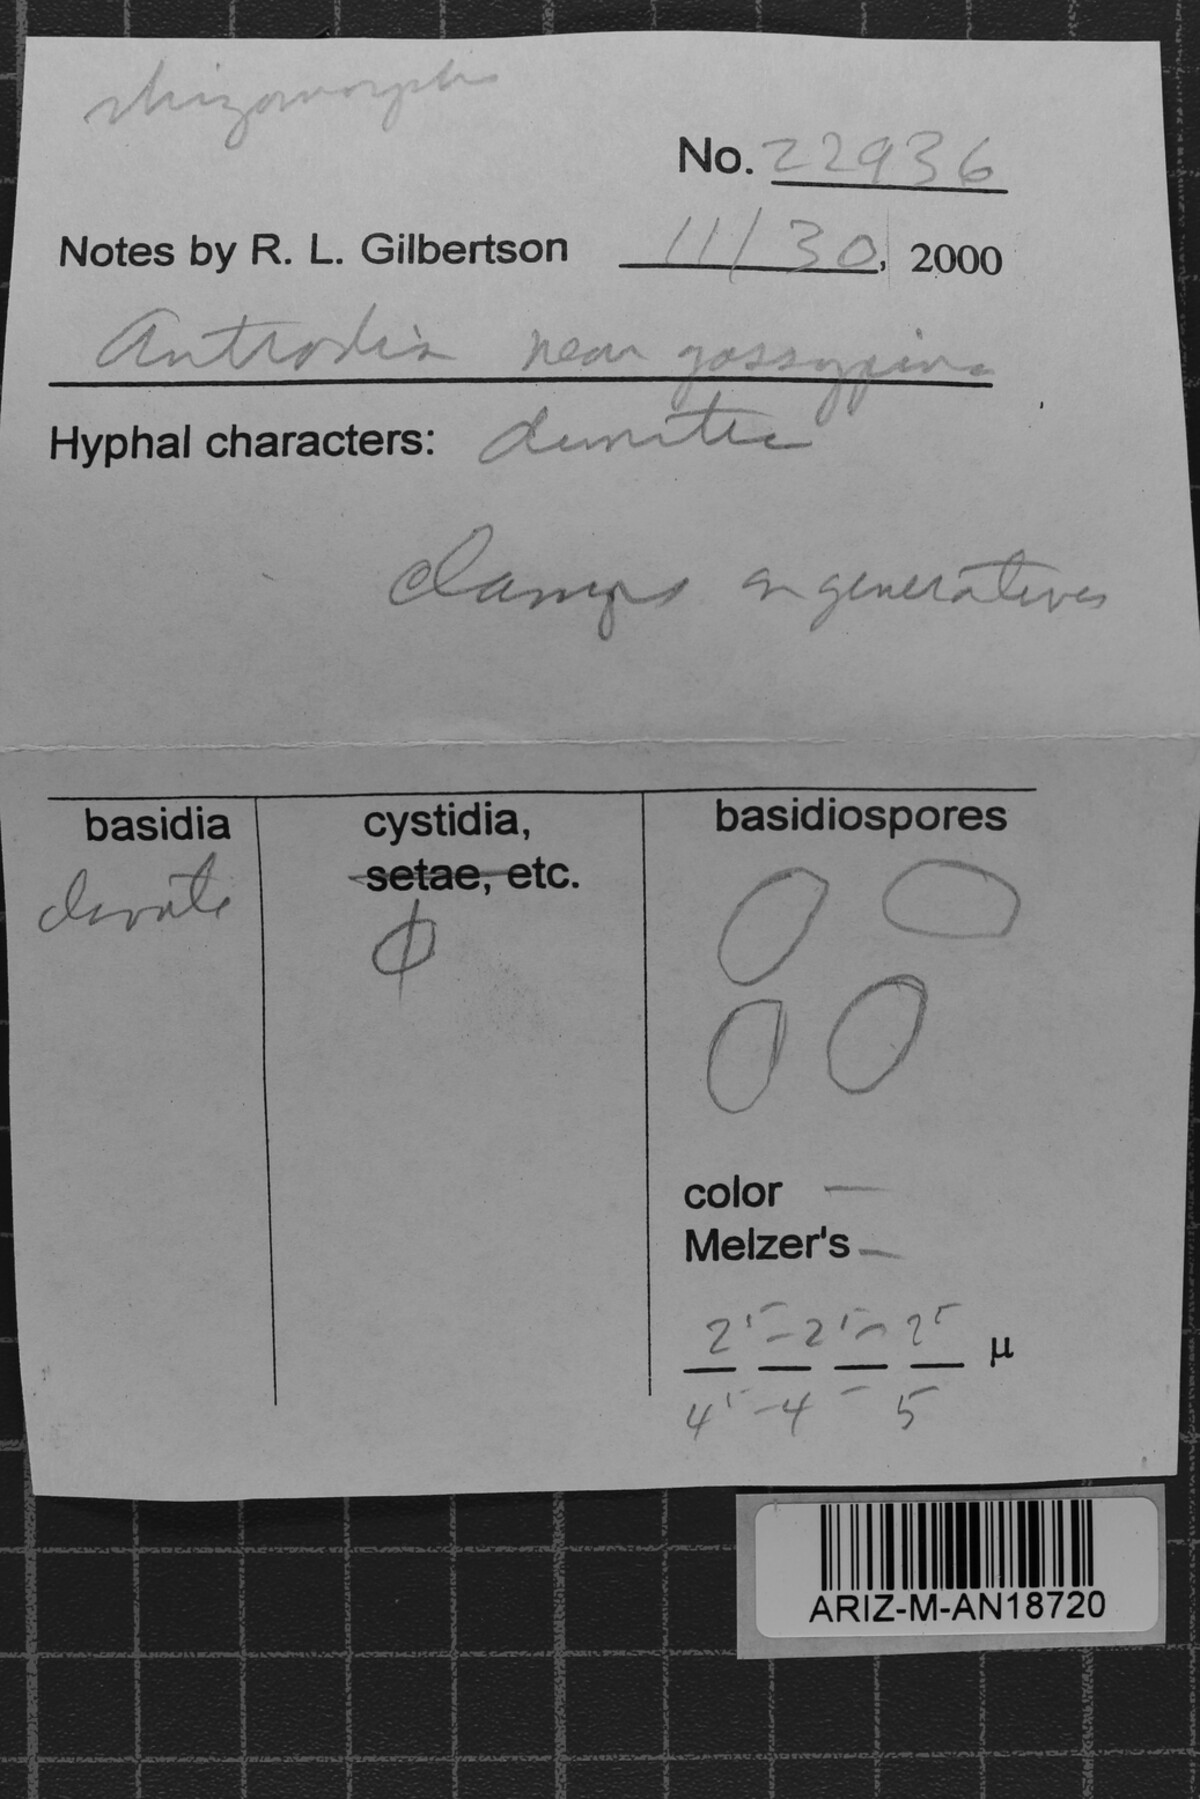 rhizomorphs
No. 22936
Notes by R. L. Gilbertson 11/30, 2000
Antrodia near gossypina
Hyphal characters: dimitic
Clamps on generatives
basidia
cystidia,
setae, etc.
basidiospores
clavate
ϕ
color —
Melzer's —
2⁵ – 2⁵ – 2⁵ µ
4⁵ – 4 – 5
ARIZ-M-AN18720